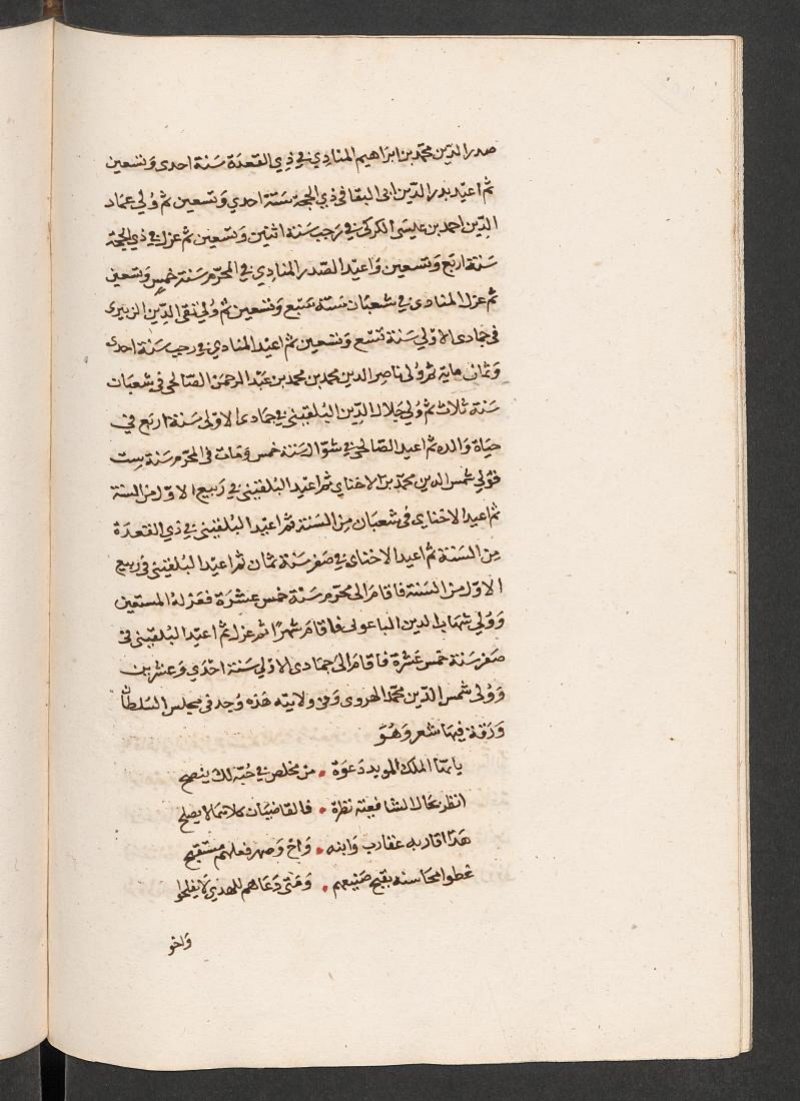 صدر الدين محمد بن ابراهيم المنادي في ذي القعدة سنة احدى وتسعين
ثم اعيد بدر الدين ابى البقا فى ذي الحجة سنة احدي وتسعين ثم ولي عماد
الدين احمد بن عيسى الكركى في رجب سنة اثنين وتسعين ثم عزل في ذي الحجة
سنة اربع وتسعين واعيد الصدر المنادي في المحرم سنة خمس وتسعين
ثم عزل المنادى في شعبان سنة سبع وتسعين ثم ولي تقى الدين الزبيرى
فى جمادى الاولي سنة تسع وتسعين ثم اعيد المنادي في رجب سنة احدى
وثمان ماية ثم ولى ناصر الدين محمد بن محمد بن عبد الرحمن الصالحى فى شعبان
سنة ثلاث ثم ولي جلال الدين البلقينى في جمادى الاولى سنة اربع في
حياة والده ثم اعيد الصالحى في شوال سنة خمس ومات فى المحرم سنة ست
فولي شمس الدين محمد بن الاخناي ثم اعيد البلقينى في ربيع الاول من السنة
ثم اعيد الاخناى فى شعبان من السنة ثم اعيد البلقينى في ذي القعدة
من السنة ثم اعيد الاخناى في صفر سنة ثمان ثم اعيد البلقينى فى ربيع
الاول من السنة فاقام الى محرم سنة خمس عشرة فعزله المستعين
وولي شهاب الدين الباعونى فاقام شهرا ثم عزل ثم اعيد البلقينى فى
صفر سنة خمس عشرة فاقام الى جمادى الاولي سنة احدي وعشرين
وولى شمس الدين محمد الهروى وفى ولايته هذه وجد فى مجلس السلطان
ورقة فيها شعر وهو
يايها الملك المويد دعوة • من مخلص في حبه لك ينصح
انظر بحال الشافعية نظرة • فالقاضيان كلاهما لا يصلح
هذا اقاربه عقارب وابنه • واخ وصهر فعلهم مستقبح
غطوا محاسنه بقبح صنيعهم • ومتى دعاهم للهدي لا يفلحوا
واخو